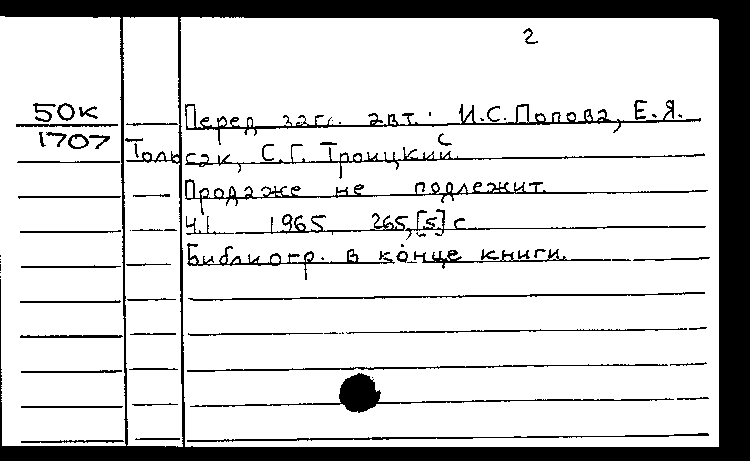 2
50к
1707
Перед загл. авт.: И.С. Попова, Е.Я.
Толысак, С.Г. Троицкий.
Продаже не подлежит.
Ч.1. 1965. 265,[5] с
Библиогр. в конце книги.